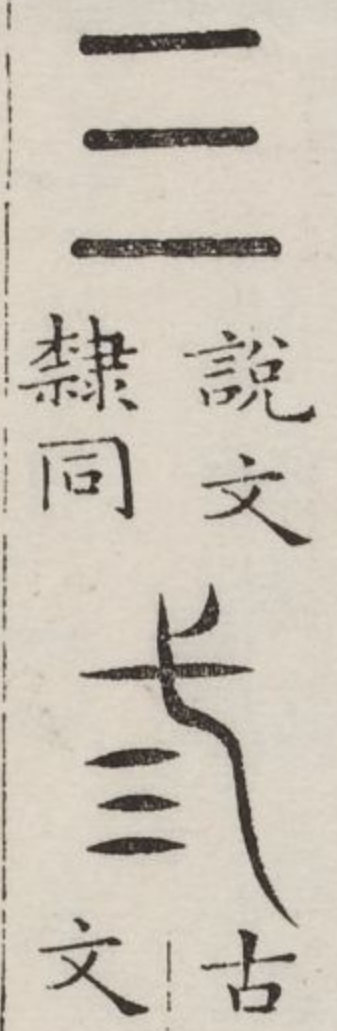 三
說文
隸同
弎
古文